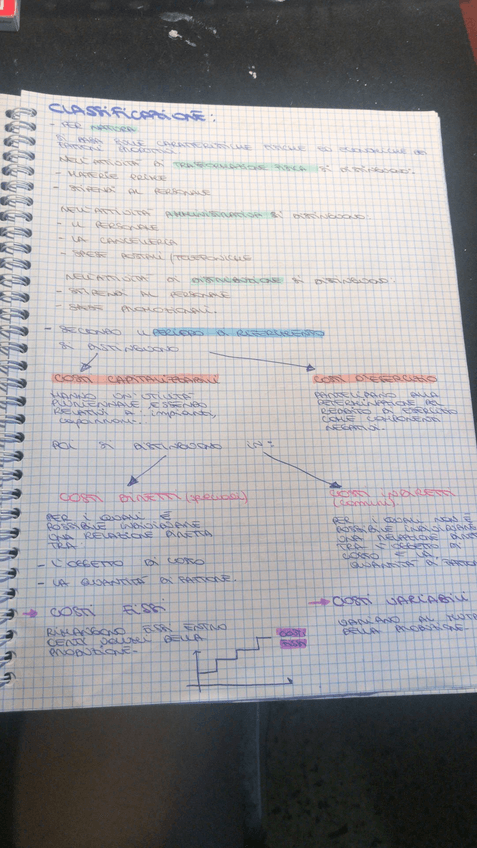 CLASSIFICAZIONE:
- PER NATURA
SI BASA SULLE CARATTERISTICHE FISICHE ED ECONOMICHE DEI
FATTORI PRODUTTIVI
NELL'ATTIVITÀ DI TRASFORMAZIONE FISICA SI DISTINGUONO:
- MATERIE PRIME
- STIPENDI AL PERSONALE
NELL'ATTIVITÀ AMMINISTRATIVA SI DISTINGUONO:
- IL PERSONALE
- LA CANCELLERIA
- SPESE POSTALI/TELEFONICHE
NELL'ATTIVITÀ DI DISTRIBUZIONE SI DISTINGUONO:
- STIPENDI AL PERSONALE
- SPESE PROMOZIONALI.
- SECONDO IL PERIODO DI RIFERIMENTO
SI DISTINGUONO
COSTI CAPITALIZZABILI
HANNO UN'UTILITÀ
PLURIENNALE ESSENDO
RELATIVI A: impianti,
capannoni.
COSTI D'ESERCIZIO
PARTECIPANO ALLA
DETERMINAZIONE DEL
REDDITO DI ESERCIZIO
COME COMPONENTI
NEGATIVI.
POI SI DISTINGUONO IN:
COSTI DIRETTI (speciali)
PER I QUALI È
POSSIBILE INDIVIDUARE
UNA RELAZIONE DIRETTA
TRA:
- L'OGGETTO DI COSTO
- LA QUANTITÀ DI FATTORE.
COSTI INDIRETTI
(comuni)
PER I QUALI NON È
POSSIBILE INDIVIDUARE
UNA RELAZIONE
TRA L'OGGETTO DI
COSTO E LA
QUANTITÀ DI
COSTI FISSI
RIMANGONO FISSI ENTRO
CERTI LIVELLI DELLA
PRODUZIONE.
COSTI
FISSI
COSTI VARIABILI
VARIANO AL
DELLA PRODUZIONE.